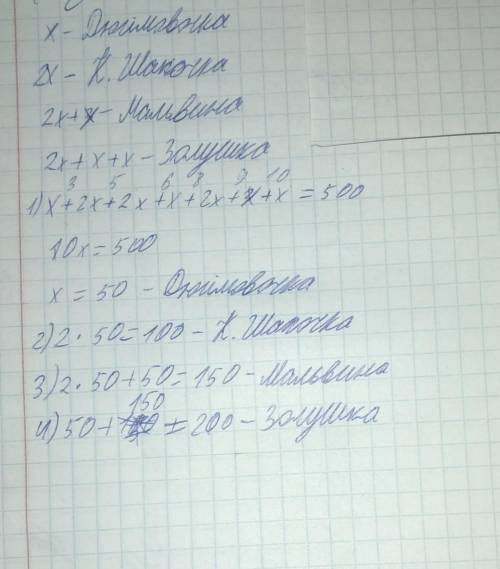 x - Дюймовочка
2x - К. Шапочка
2x+x - Мальвина
2x+x+x - Золушка
3 5 6 8 9 10
1) x+2x+2x+x+2x+x+x = 500
10x = 500
x = 50 - Дюймовочка
2) 2 · 50 = 100 - К. Шапочка
3) 2 · 50 + 50 = 150 - Мальвина
150
4) 50 + = 200 - Золушка